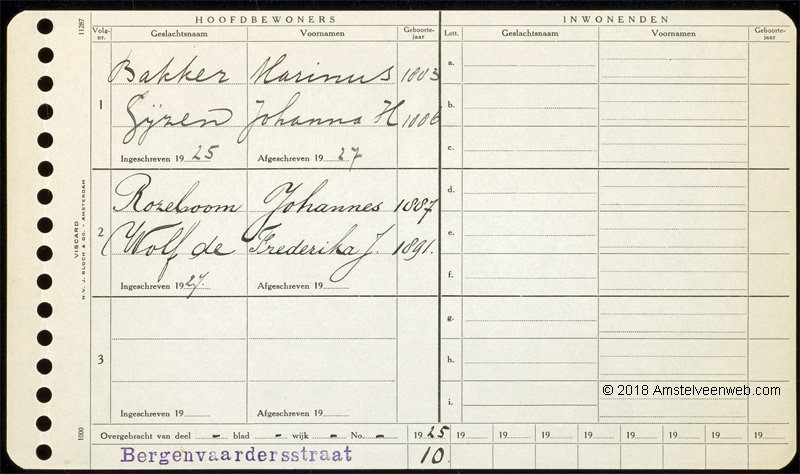 HOOFDBEWONERS INWONENDEN
11287
Volg-nr. Geslachtsnaam Voornamen Geboorte-jaar Lett. Geslachtsnaam Voornamen Geboorte-jaar
Bakker Marinus 1883 a.
1 b.
Gijzen Johanna H 1886
c.
Ingeschreven 1925 Afgeschreven 1927
d.
Rozeboom Johannes 1887
2 e.
Wolf de Frederika J. 1891.
f.
Ingeschreven 1927. Afgeschreven 19
VISCARD
N.V. J. BLOCH & CO. - AMSTERDAM
g.
3 h.
i.
© 2018 Amstelveenweb.com
Ingeschreven 19 Afgeschreven 19
1000
Overgebracht van deel - blad - wijk - No. - 1925 19 19 19 19 19 19 19 19
Bergenvaardersstraat 10.